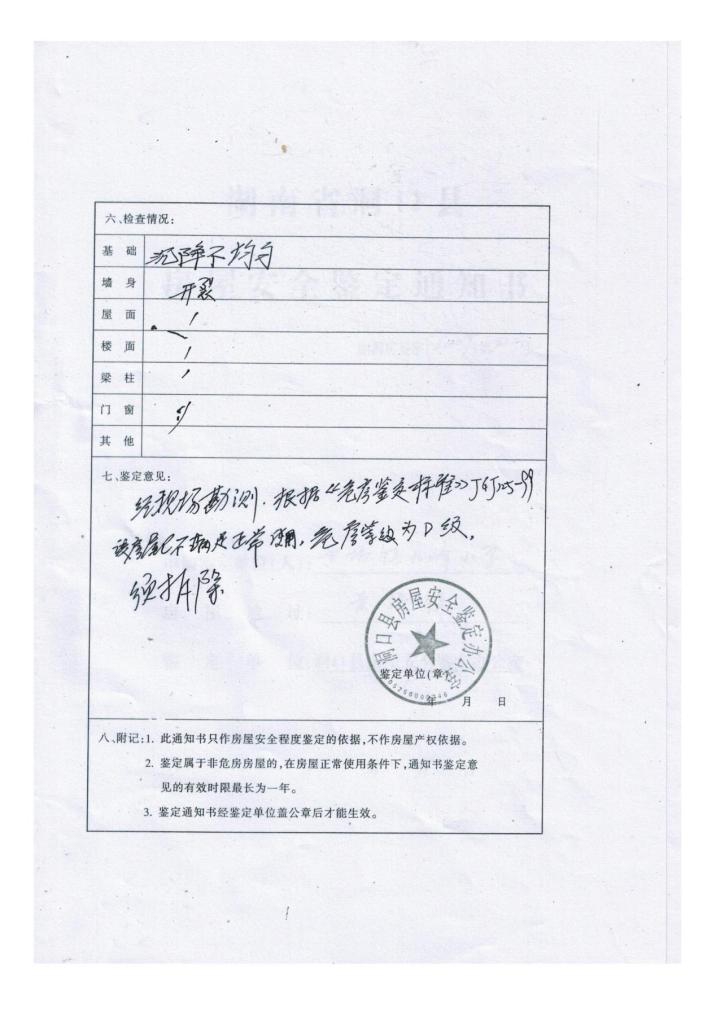 六、检查情况:
基础 沉降不均匀
墙身 开裂
屋面 /
楼面 /
梁柱 /
门窗
其他
七、鉴定意见:
经现场勘测. 根据《危房鉴定标准》JGJ125-99
该房屋已不满足正常使用, 危房等级为D级,
须拆除
洞口县房屋安全鉴定办公室
鉴定单位(章)
年 月 日
八、附记:1. 此通知书只作房屋安全程度鉴定的依据,不作房屋产权依据。
2. 鉴定属于非危房房屋的,在房屋正常使用条件下,通知书鉴定意
见的有效时限最长为一年。
3. 鉴定通知书经鉴定单位盖公章后才能生效。